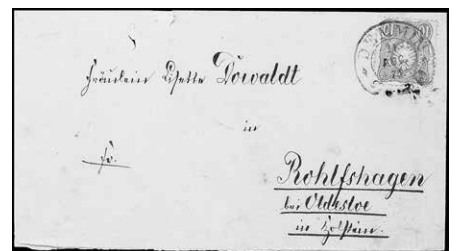 DEMMIN
Fräulein Lisette Dowaldt
in
fr.
Rohlfshagen
bei Oldesloe
in Holstein.